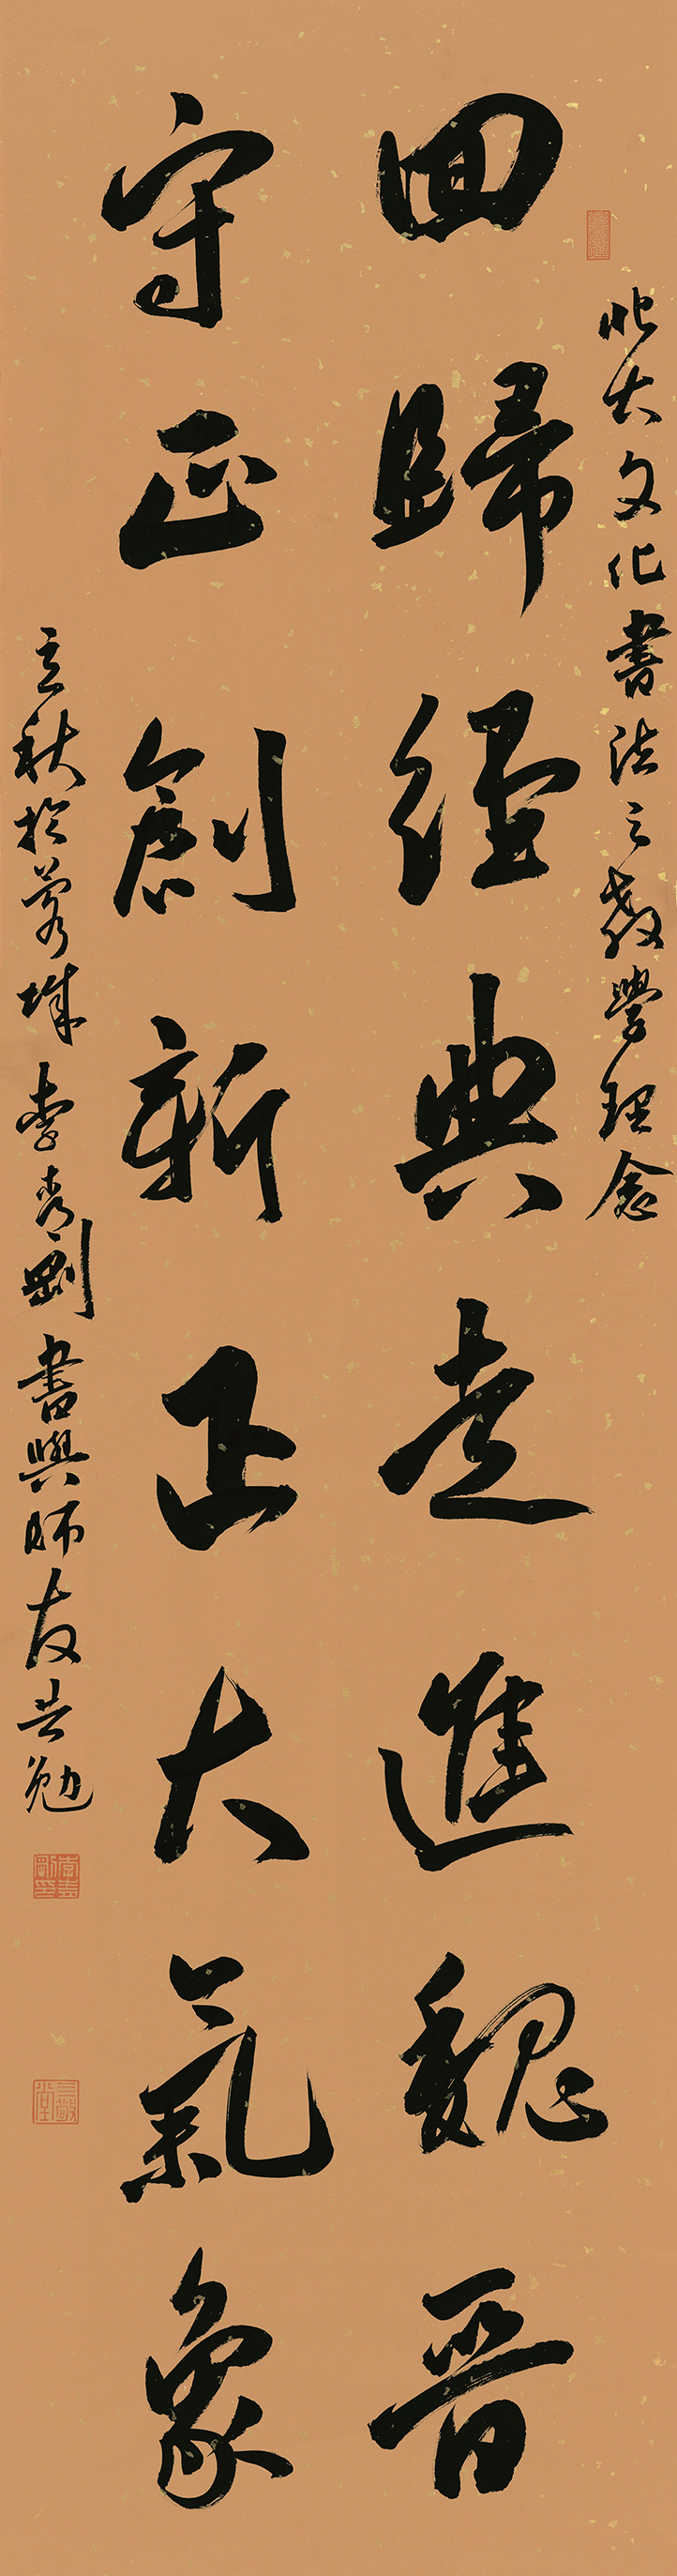 北大文化書法之教學理念
回歸經典走進魏晉
守正創新正大氣象
立秋於蓉城李秀剛書與師友共勉